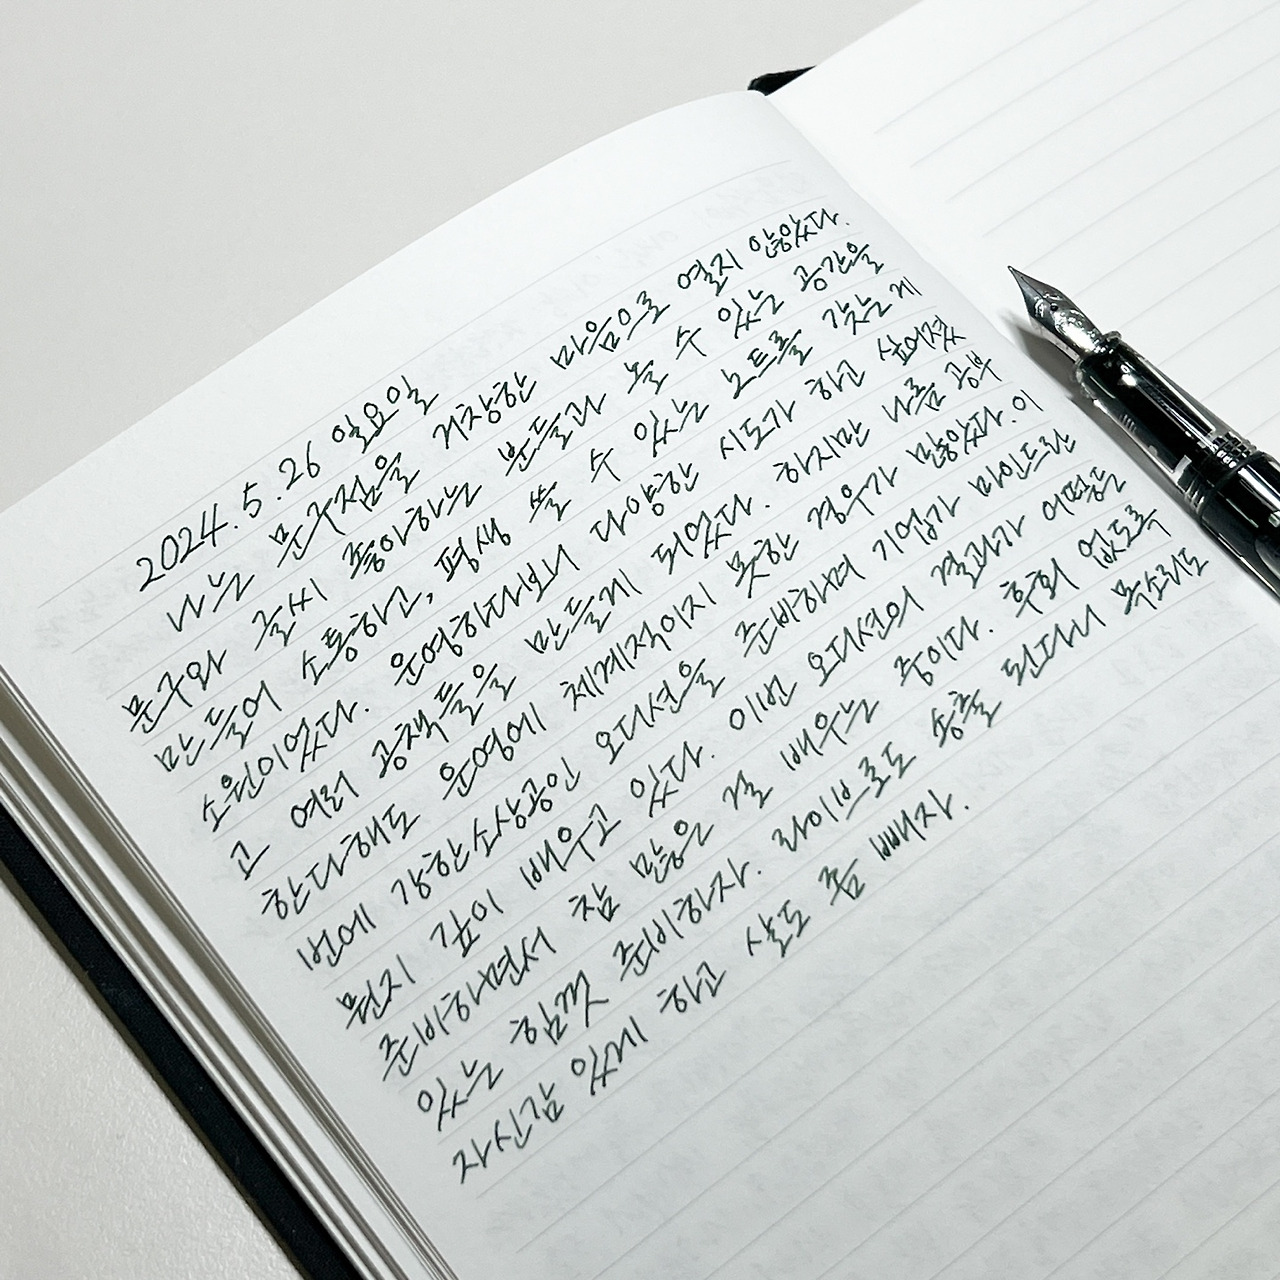 2024.5.26 일요일
나는 문구점을 거창한 마음으로 열지 않았다.
문구와 글씨 좋아하는 분들과 놀 수 있는 공간을
만들어 소통하고, 평생 쓸 수 있는 노트를 갖는 게
소원이었다. 운영하다보니 다양한 시도가 하고 싶어졌
고 여러 공책들을 만들게 되었다. 하지만 나름 공부
한다해도 운영에 체계적이지 못한 경우가 많았다. 이
번에 강한소상공인 오디션을 준비하며 기업가 마인드란
뭔지 깊이 배우고 있다. 이번 오디션의 결과가 어떻든
준비하면서 참 많은 걸 배우는 중이다. 후회 없도록
있는 힘껏 준비하자. 라이브로도 송출 된다니 목소리도
자신감 있게 하고 살도 좀 빼자.